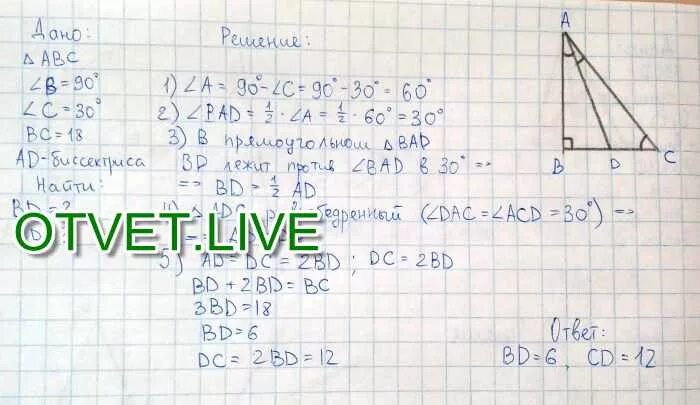 Дано:
△ ABC
∠B = 90°
∠C = 30°
BC = 18
AD-биссектриса
Найти:
BD = ?
Решение:
1) ∠A = 90° - ∠C = 90° - 30° = 60°
2) ∠BAD = 1/2 · ∠A = 1/2 · 60° = 30°
3) В прямоугольном △ BAD
BD лежит против ∠BAD в 30° =>
=> BD = 1/2 AD
△ ADC (∠DAC = ∠ACD = 30°) =>
5) AD = DC = 2BD ; DC = 2BD
BD + 2BD = BC
3BD = 18
BD = 6
DC = 2BD = 12
Ответ:
BD = 6, CD = 12
A
B
D
C
OTVET.LIVE